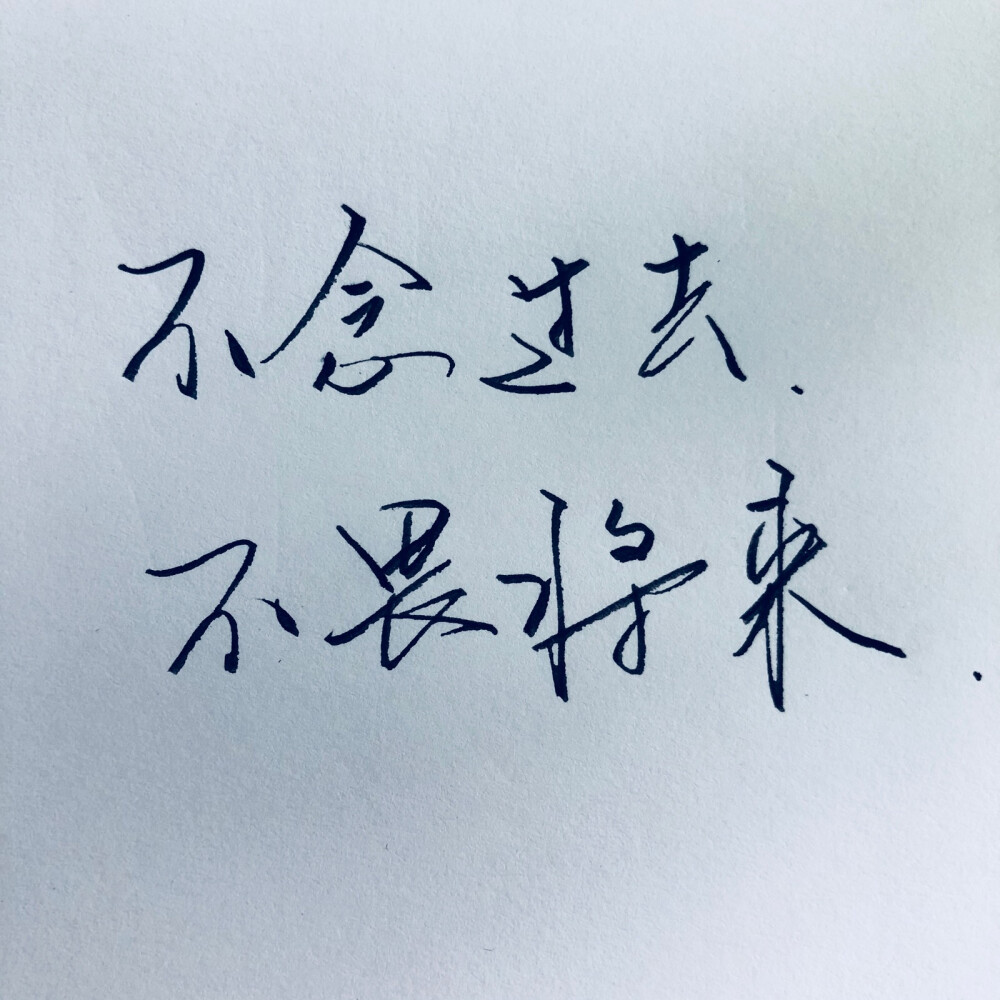 不念过去.
不畏将来.